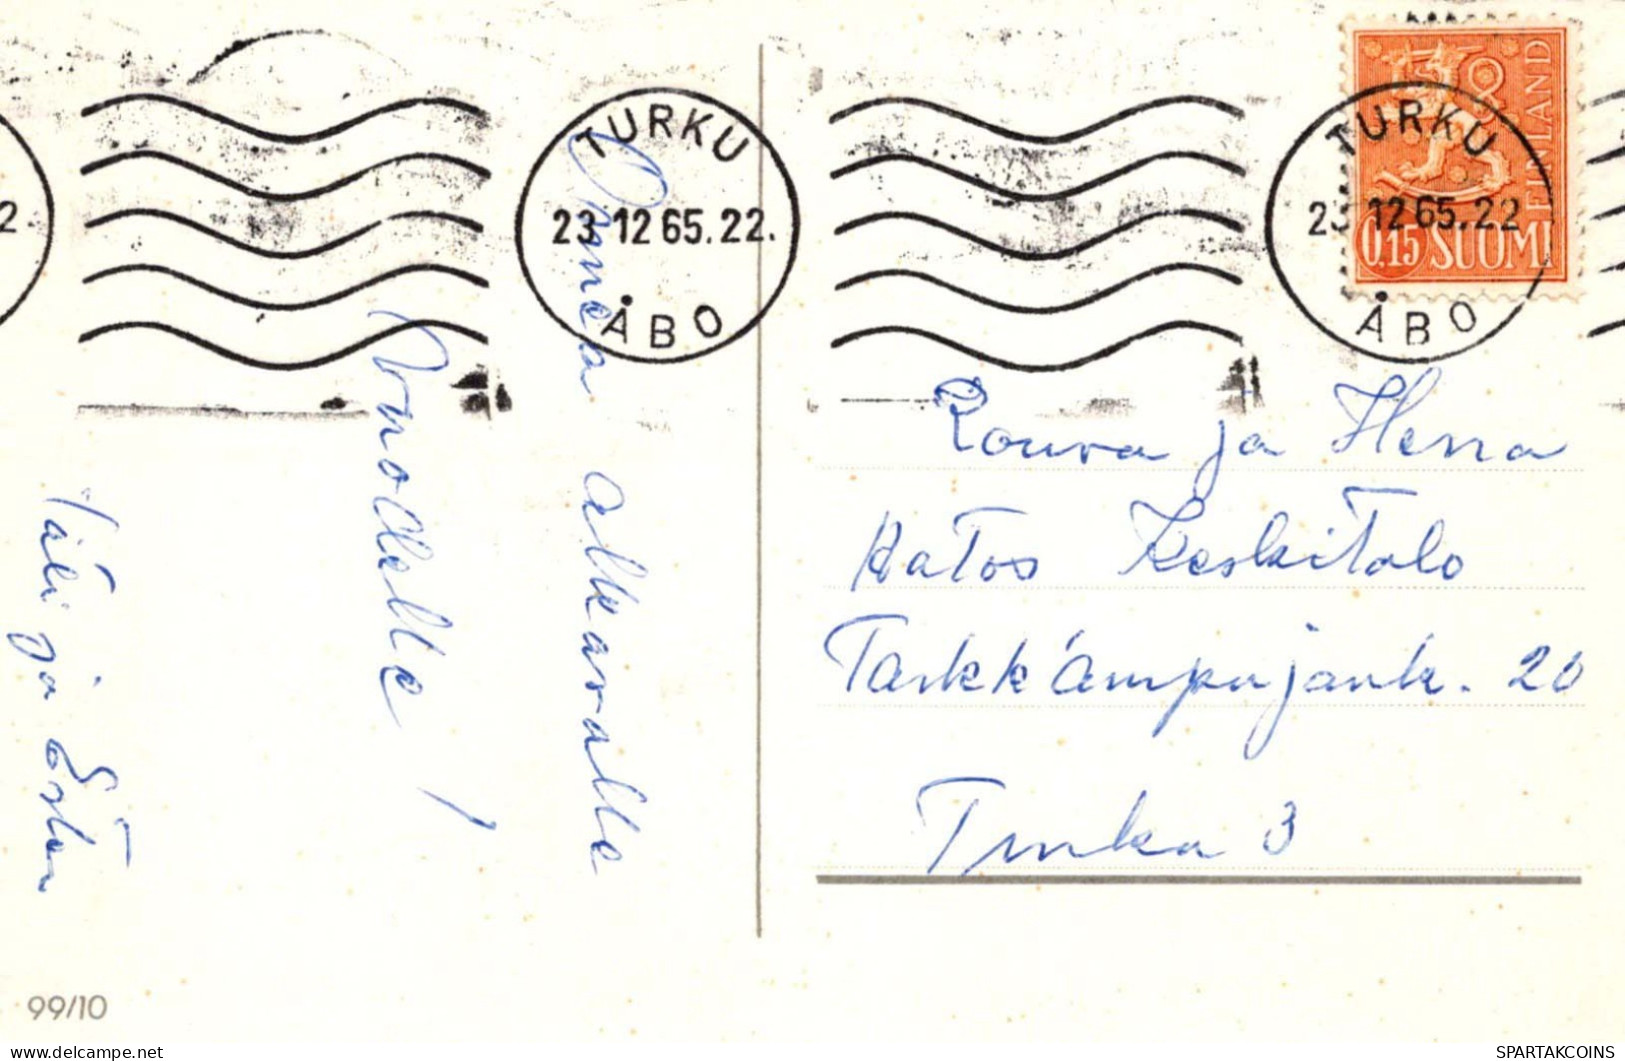 Onnea alkavalle
vuodelle!
Täti ja
TURKU
23.12.65.22.
ÅBO
TURKU
23.12.65.22
ÅBO
FINLAND
0,15 SUOMI
Rouva ja Herra
Keskitalo
Tarkk'ampujank. 20
Turku 3
99/10
delcampe.net
SPARTAKCOINS